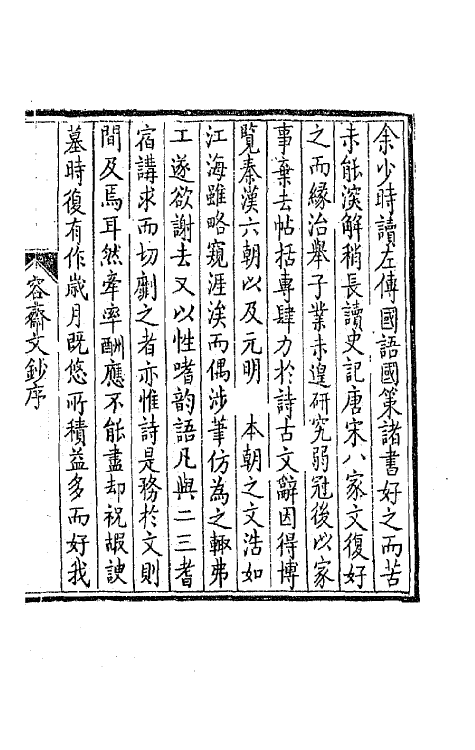 余少時讀左傳國語國策諸書好之而苦
未能深解稍長讀史記唐宋八家文復好
之而緣治舉子業未遑研究弱冠後以家
事棄去帖括專肆力於詩古文辭因得博
覽秦漢六朝以及元明　本朝之文浩如
江海雖略窺涯涘而偶涉筆仿為之輒弗
工遂欲謝去又以性嗜韵語凡與二三耆
宿講求而切劘之者亦惟詩是務於文則
間及焉耳然牽率酬應不能盡却祝嘏諛
墓時復有作歲月既悠所積益多而好我
容齋文鈔序